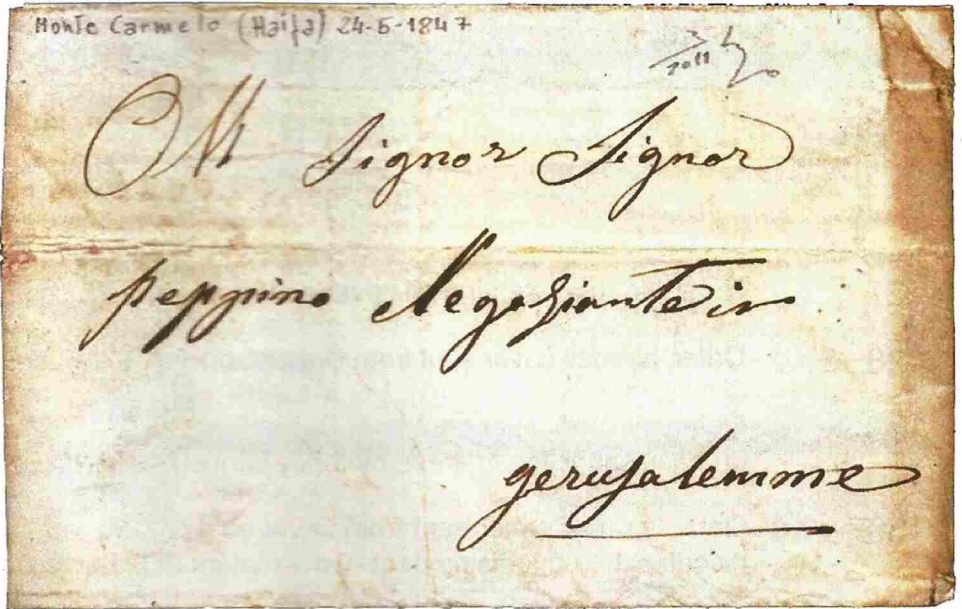 Monte Carmelo (Haifa) 24-5-1847
Al Signor Signor
peppino Negoziante in
gerusalemme